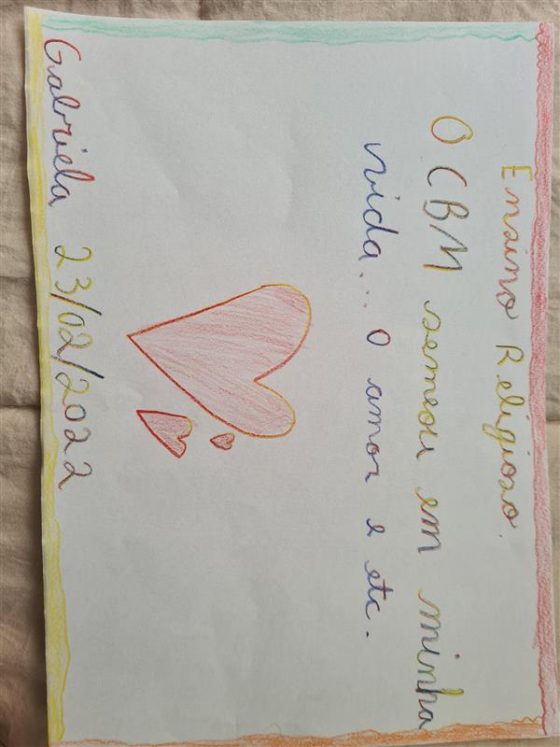 Ensino Religioso.
O CBM semeou em minha
vida... O amor e etc.
Gabriela 23/02/2022